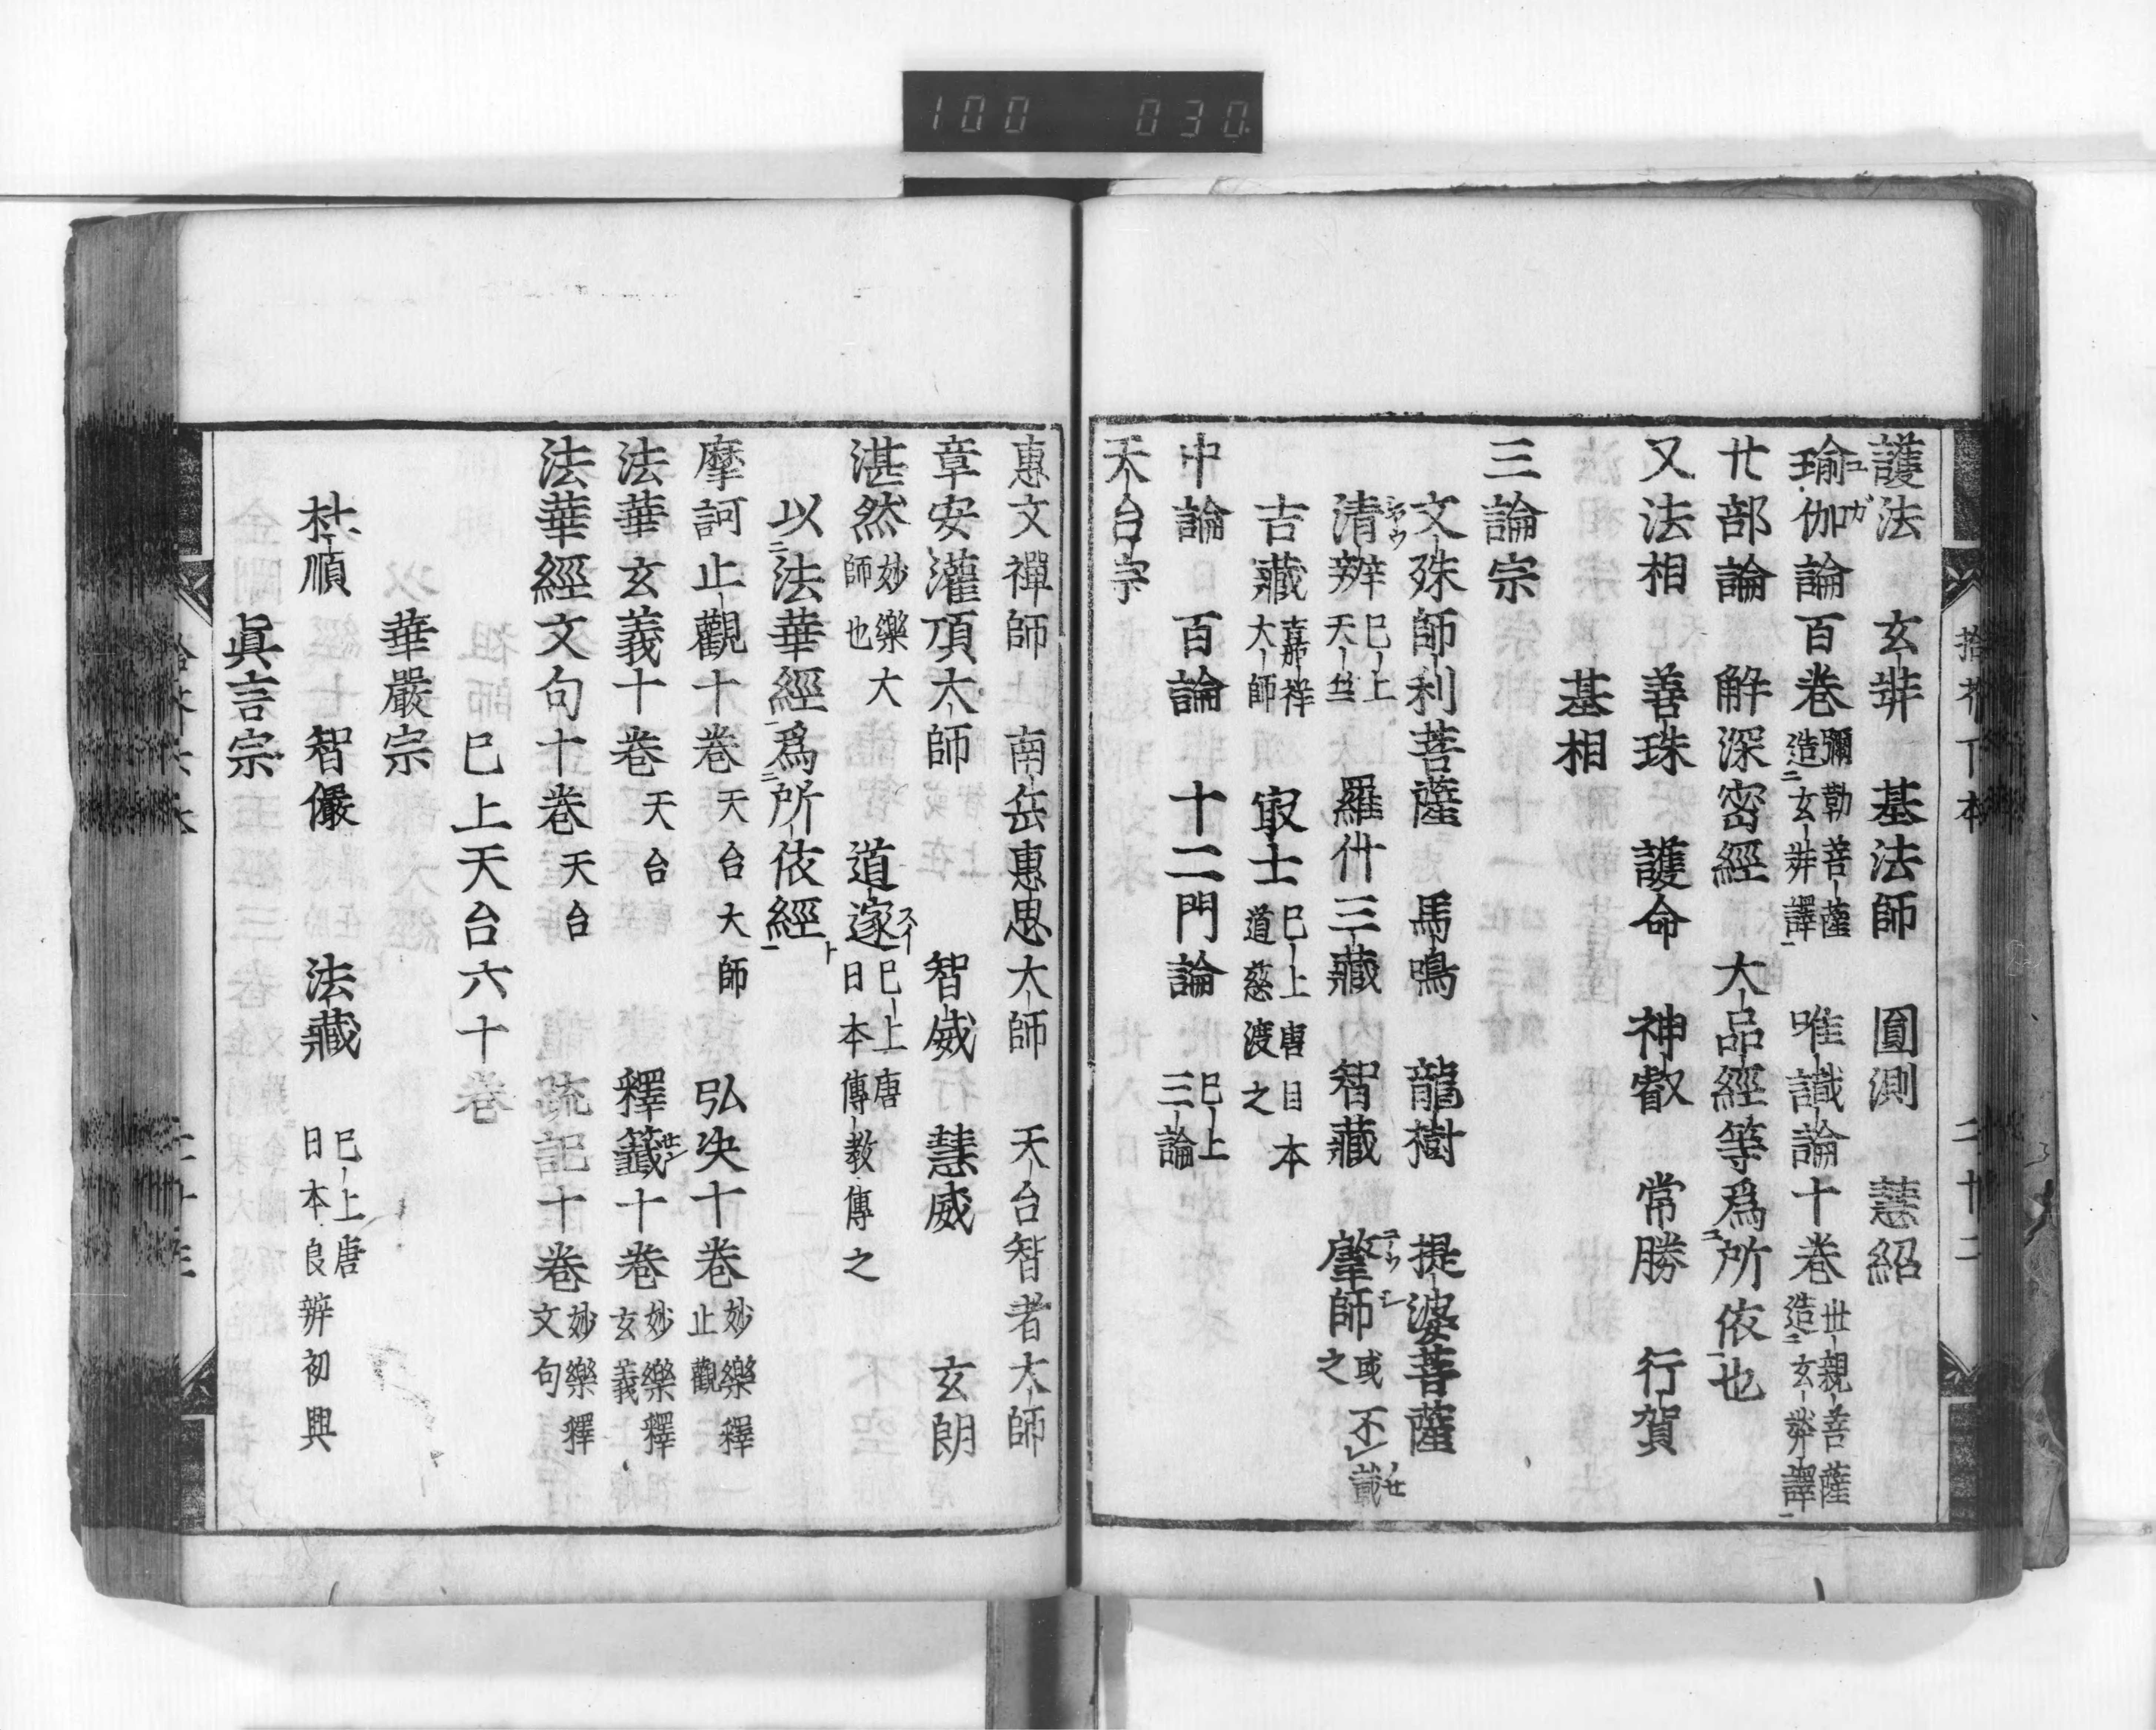 100 030
護法 玄弉 基法師 圓測 慧紹
瑜伽論百卷 彌勒菩薩造玄弉譯 唯識論十卷 世親菩薩造玄弉譯
廿部論 解深密經 大品經等爲所依也
又法相 善珠 護命 神叡 常勝 行賀
基相
三論宗
文殊師利菩薩 馬鳴 龍樹 提婆菩薩
清辨 已上天竺 羅什三藏 智藏 肇師 或不載之
吉藏 嘉祥大師 㝡士 已上唐道慈渡 日本之
中論 百論 十二門論 已上三論
天台宗
拾芥下本 二十二
惠文禪師 南岳惠思大師 天台智者大師
章安灌頂大師 智威 慧威 玄朗
湛然 妙樂大師也 道邃 已上唐日本傳教傳之
以法華經爲所依經
摩訶止觀十卷 天台大師 弘决十卷 妙樂釋止觀
法華玄義十卷 天台 釋籤十卷 妙樂釋玄義
法華經文句十卷 天台 疏記十卷 妙樂釋文句
已上天台六十卷
華嚴宗
杜順 智儼 法藏 已上唐日本良辨初興
眞言宗